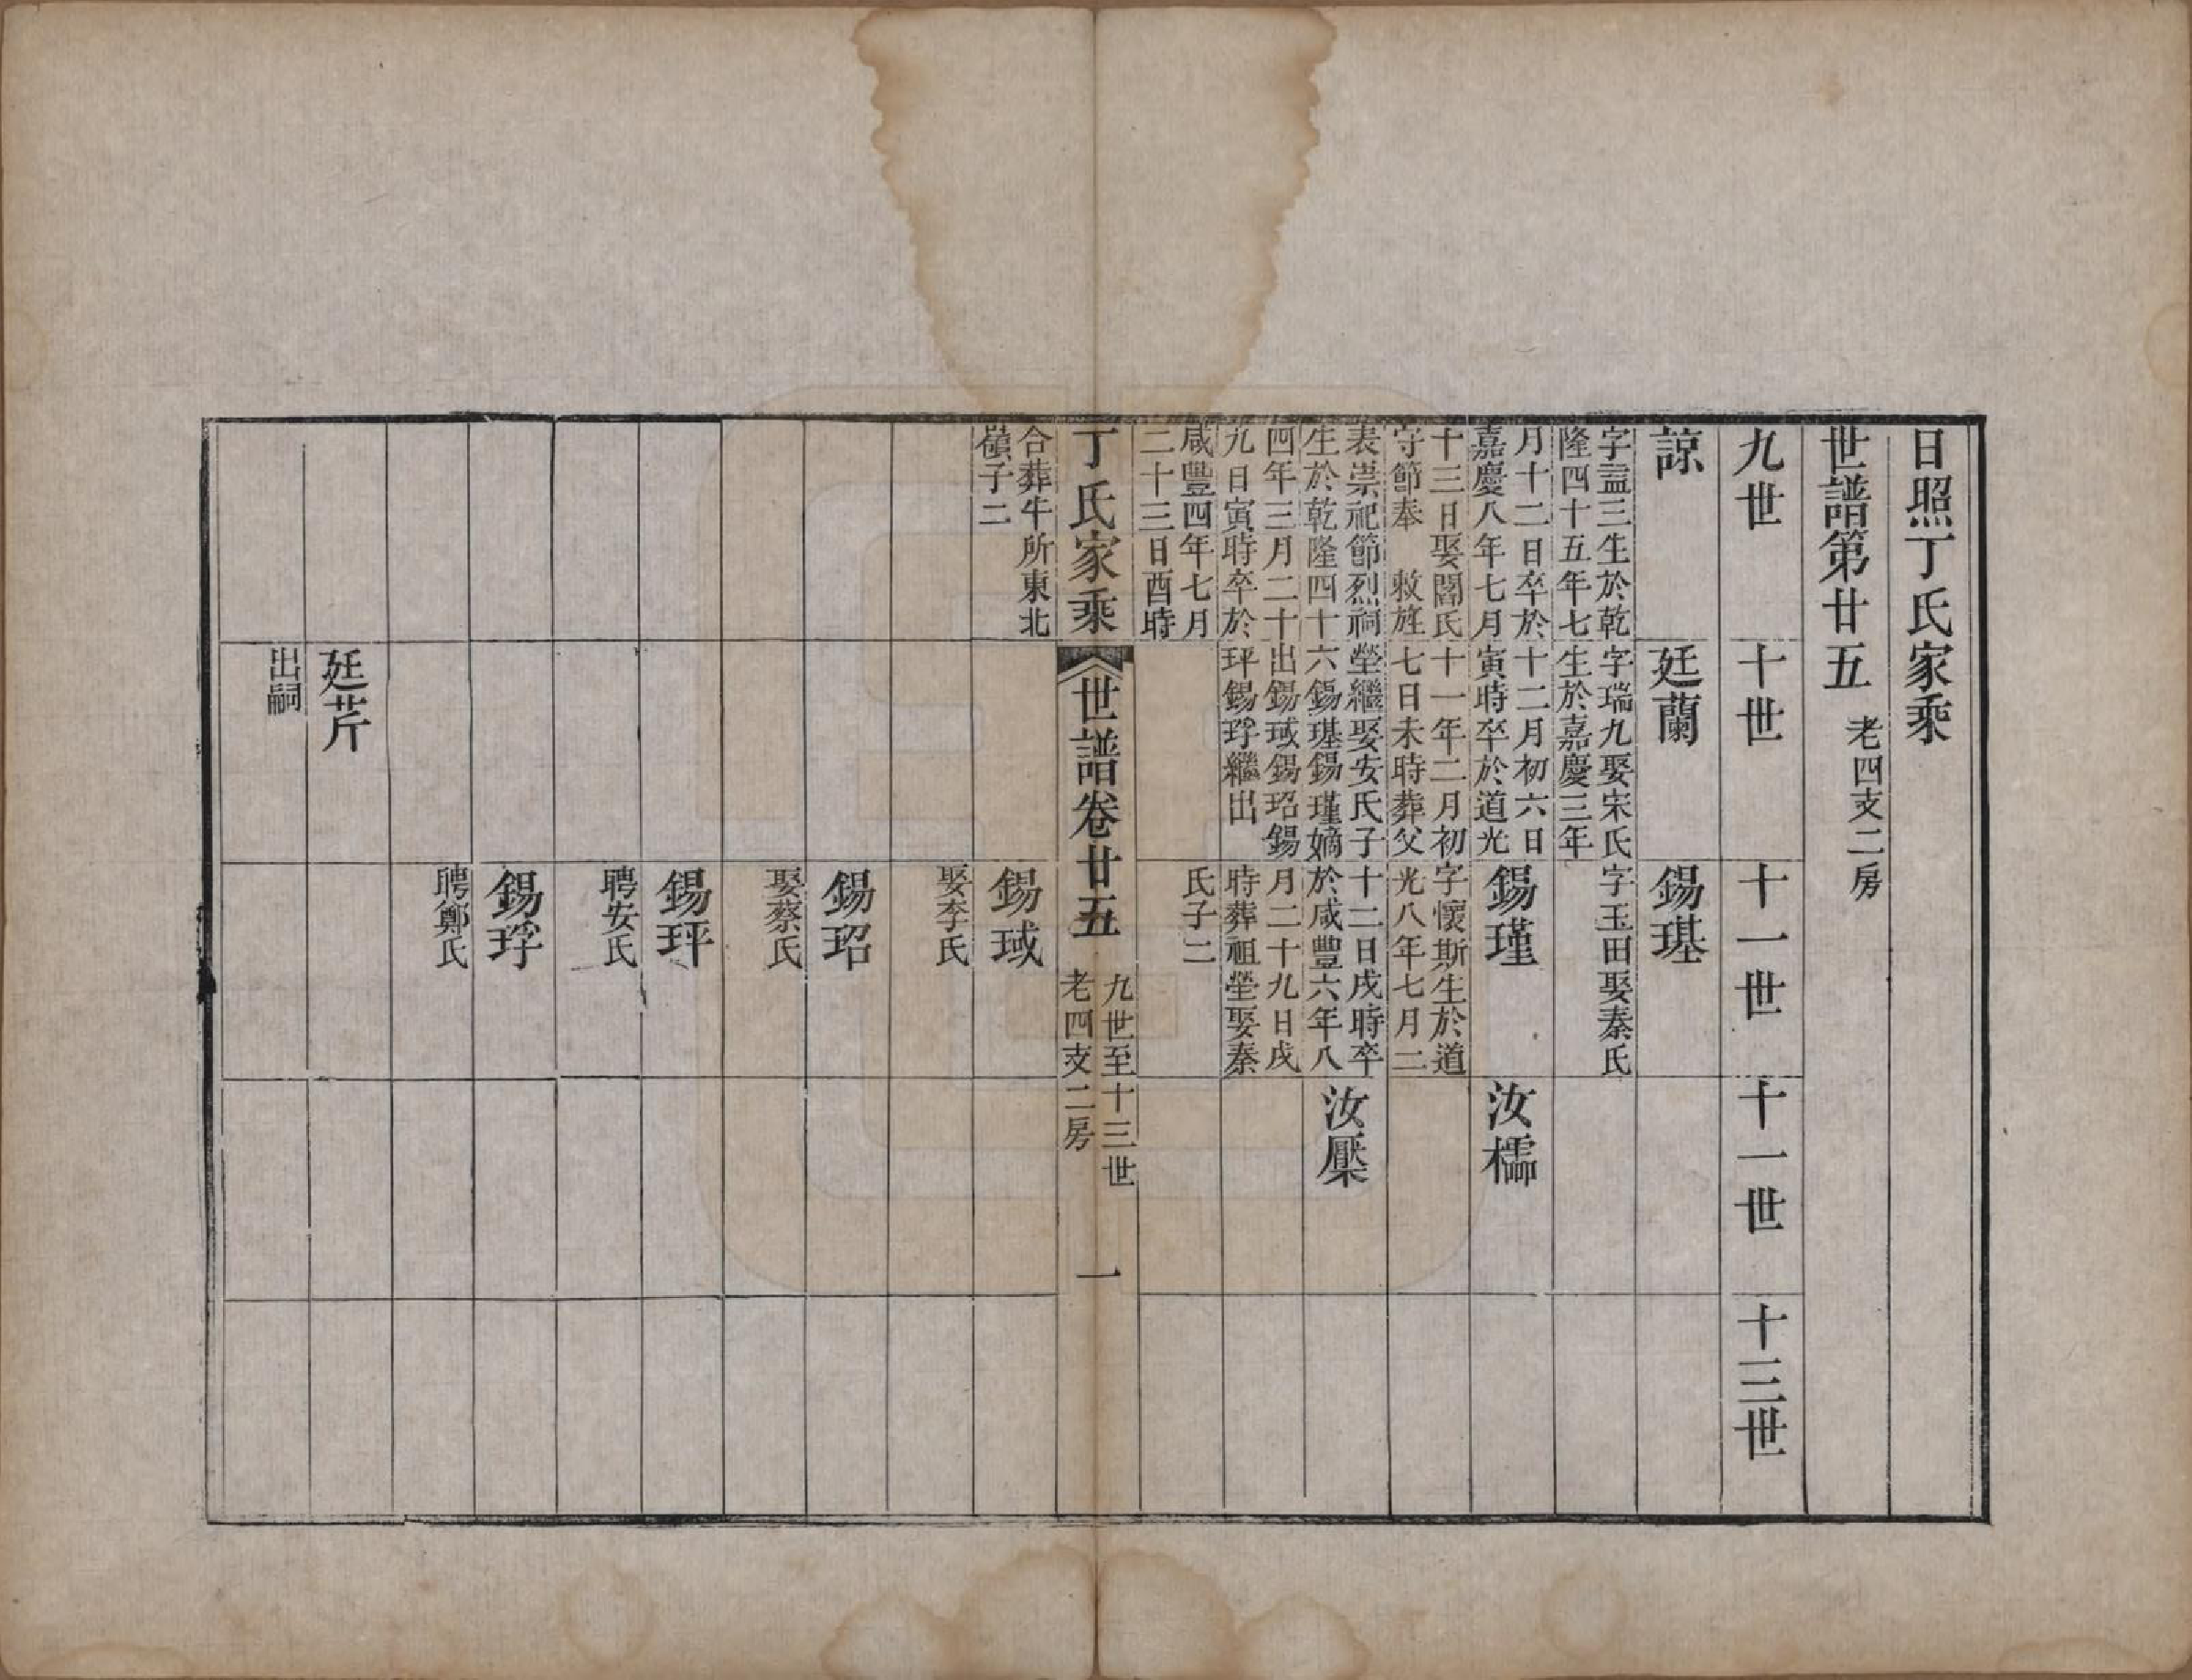 日照丁氏家乘
世譜第廿五　老四支二房
九世
十世
十一世
十一世
十三世
諒
字諡三生於乾
隆四十五年七
月十二日卒於
嘉慶八年七月
十三日娶閻氏
守節奉　敕旌
表崇祀節烈祠
生於乾隆四十
四年三月二十
九日寅時卒於
咸豐四年七月
二十三日酉時
合葬牛所東北
嶺子二
廷蘭
字瑞九娶宋氏
生於嘉慶三年
十二月初六日
寅時卒於道光
十一年二月初
七日未時葬父
塋繼娶安氏子
六錫璂錫瑾嫡
出錫琙錫玿錫
玶錫琈繼出
錫璂
字玉田娶秦氏
錫瑾
字懷斯生於道
光八年七月二
十二日戌時卒
於咸豐六年八
月二十九日戌
時葬祖塋娶秦
氏子二
汝檽
汝檿
丁氏家乘
世譜卷廿五
九世至十三世
老四支二房
一
錫琙
娶李氏
錫玿
娶蔡氏
錫玶
聘安氏
錫琈
聘鄭氏
廷芹
出嗣